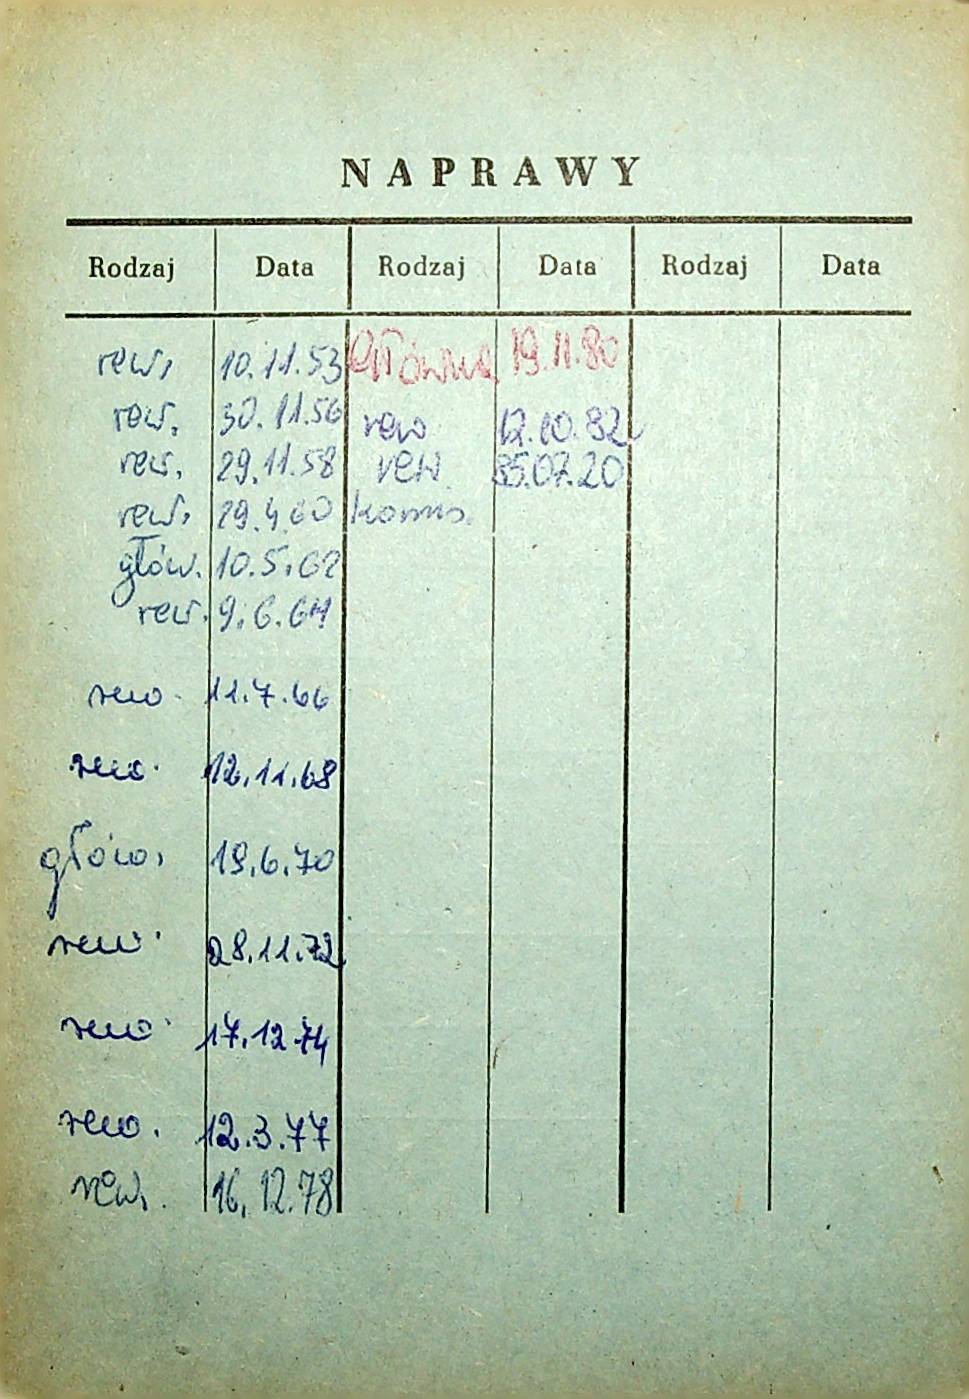 NAPRAWY
Rodzaj Data Rodzaj Data Rodzaj Data
rew. 10.11.53 Główna 19.11.80
rew. 30.11.56 rew 12.10.82
rew. 29.11.58 rew. 85.07.20
rew. 29.4.60 komis.
głów. 10.5.62
rew. 9.6.64
rew. 11.7.66
rew. 12.11.68
głów. 19.6.70
rew. 28.11.72
rew. 17.12.74
rew. 12.3.77
rew. 16.12.78